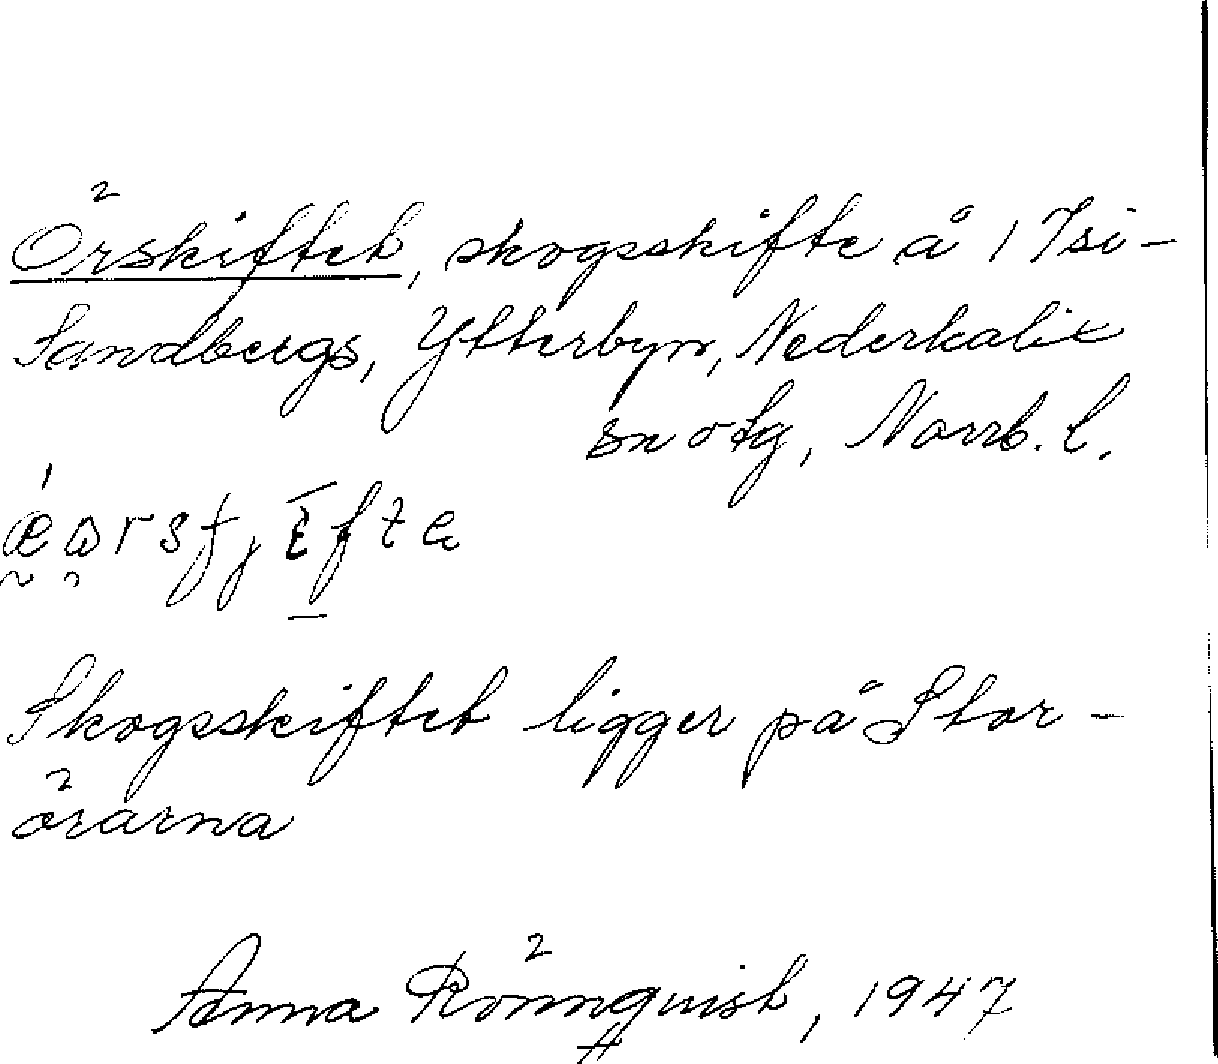 Örskiftet, skogsskifte å 1 Isi-
Sandbergs, Ytterbyn, Nederkalix
sn o tg, Norrb. l.
Skogsskiftet ligger på Stor-
örarna
Anna Rönnquist, 1947